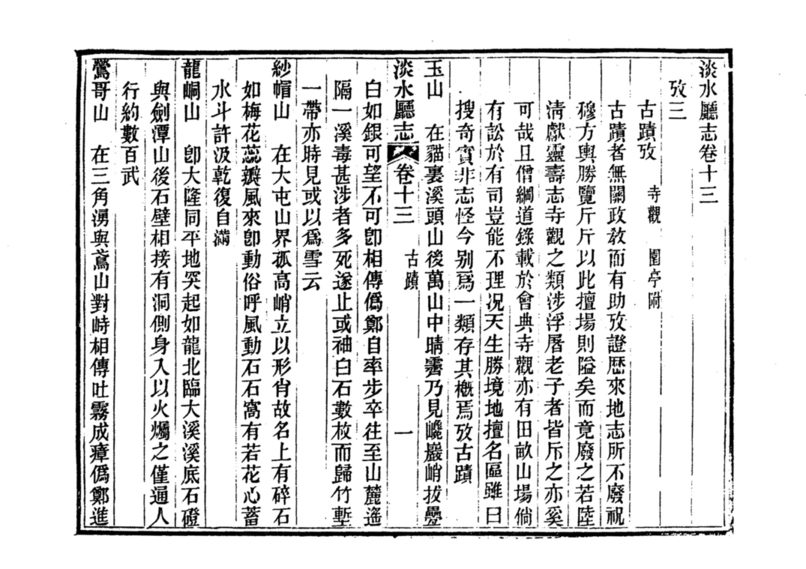 淡水廳志卷十三
攷三
古蹟攷 寺觀 園亭附
古蹟者無關政教而有助攷證歷來地志所不廢祝
穆方輿勝覽斤斤以此擅場則隘矣而竟廢之若陸
清獻靈壽志寺觀之類涉浮屠老子者皆斥之亦奚
可哉且僧綱道錄載於會典寺觀亦有田畝山場倘
有訟於有司豈能不理况天生勝境地擅名區雖曰
搜奇實非志怪今別爲一類存其槪焉攷古蹟
玉山 在貓裏溪頭山後萬山中晴霽乃見巉巖峭拔疊
淡水廳志 卷十三 古蹟 一
白如銀可望不可卽相傳僞鄭自率步卒往至山麓遙
隔一溪毒甚涉者多死遂止或袖白石數枚而歸竹塹
一帶亦時見或以爲雪云
紗帽山 在大屯山界孤高峭立以形肖故名上有碎石
如梅花蕊瓣風來卽動俗呼風動石石窩有若花心蓄
水斗許汲乾復自滿
龍峒山 卽大隆同平地突起如龍北臨大溪溪底石磴
與劍潭山後石壁相接有洞側身入以火燭之僅通人
行約數百武
鶯哥山 在三角湧與鳶山對峙相傳吐霧成瘴僞鄭進